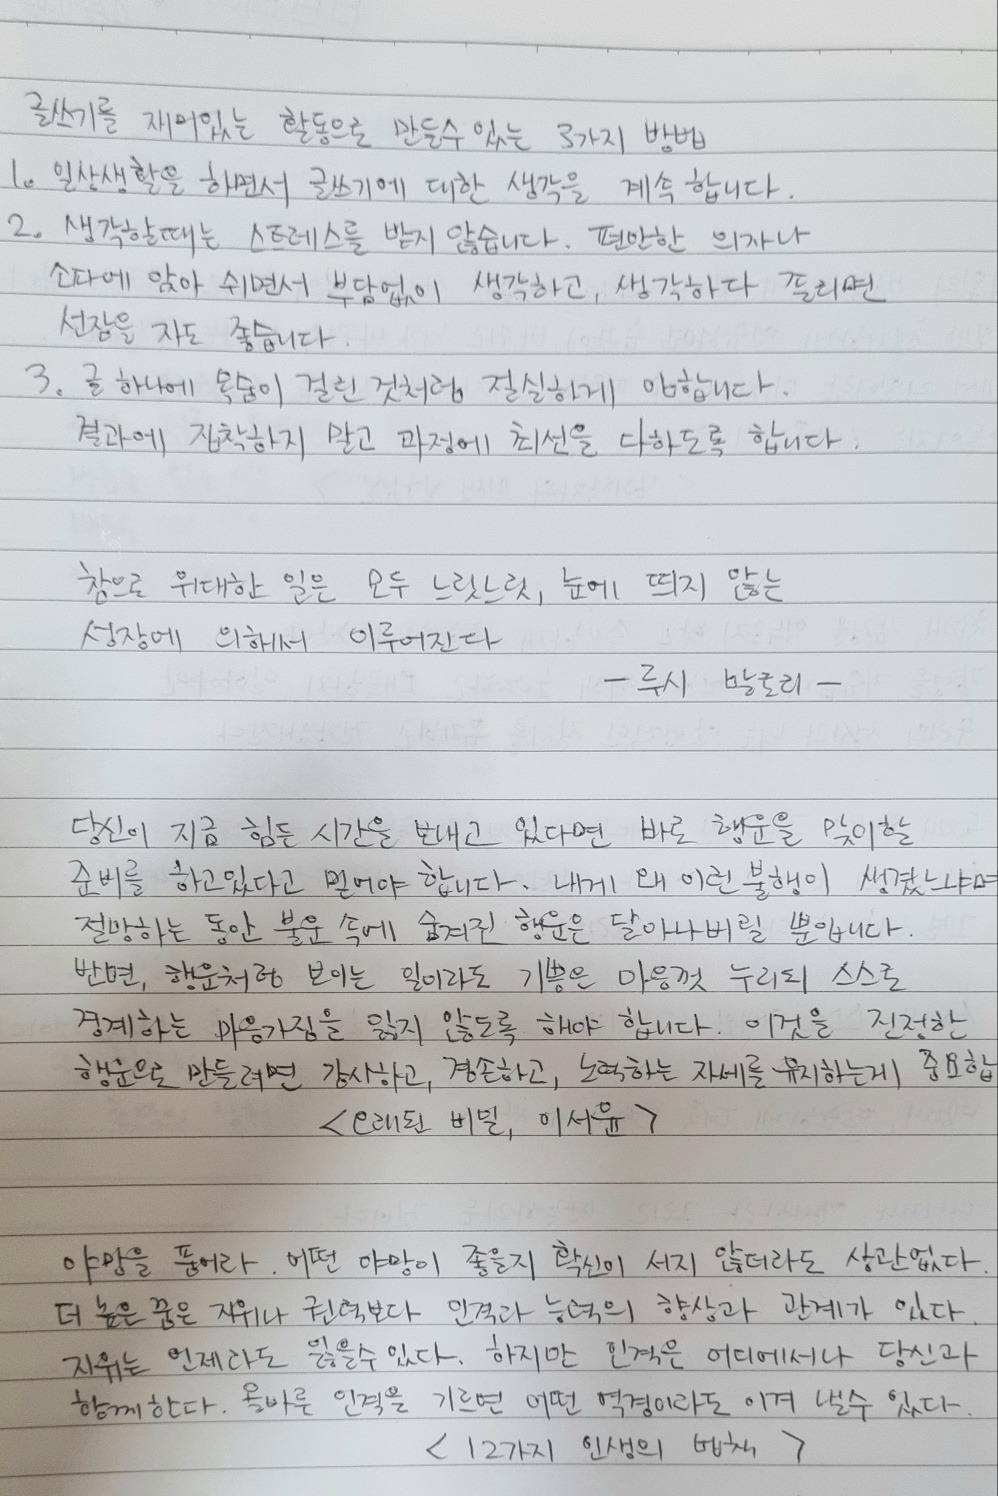 글쓰기를 재미있는 활동으로 만들수 있는 3가지 방법
1. 일상생활을 하면서 글쓰기에 대한 생각을 계속 합니다.
2. 생각할때는 스트레스를 받지 않습니다. 편안한 의자나
소파에 앉아 쉬면서 부담없이 생각하고, 생각하다 졸리면
선잠을 자도 좋습니다.
3. 글 하나에 목숨이 걸린 것처럼 절실하게 안합니다.
결과에 집착하지 말고 과정에 최선을 다하도록 합니다.
참으로 위대한 일은 모두 느릿느릿, 눈에 띄지 않는
성장에 의해서 이루어진다
- 루시 말로리 -
당신이 지금 힘든 시간을 보내고 있다면 바로 행운을 맞이할
준비를 하고있다고 믿어야 합니다. 내게 왜 이런 불행이 생겼느냐며
절망하는 동안 불운 속에 숨겨진 행운은 달아나버릴 뿐입니다.
반면, 행운처럼 보이는 일이라도 기쁨은 마음껏 누리되 스스로
경계하는 마음가짐을 잃지 않도록 해야 합니다. 이것을 진정한
행운으로 만들려면 감사하고, 겸손하고, 노력하는 자세를 유지하는게 중요합
<오래된 비밀, 이서윤>
야망을 품어라. 어떤 야망이 좋을지 확신이 서지 않더라도 상관없다.
더 높은 꿈은 지위나 권력보다 인격과 능력의 향상과 관계가 있다.
지위는 언제라도 잃을수 있다. 하지만 인격은 어디에서나 당신과
함께한다. 올바른 인격을 기르면 어떤 역경이라도 이겨 낼수 있다.
<12가지 인생의 법칙>